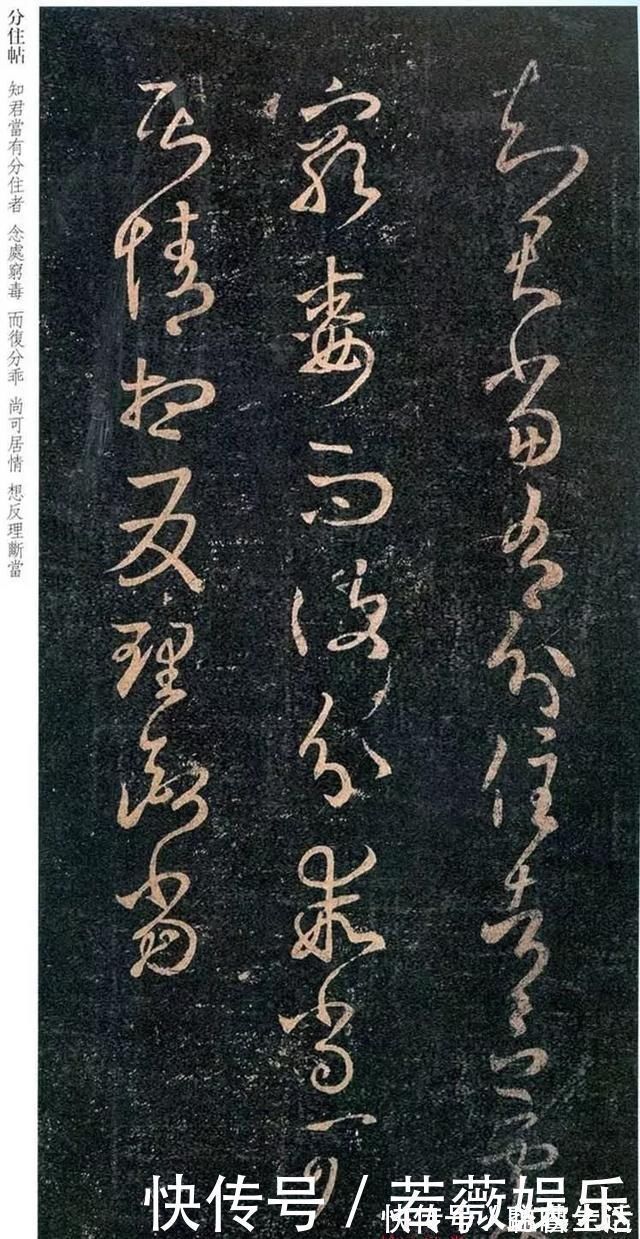 分住帖 知君當有分住者 念處窮毒 而復分乖 尚可居情 想反理斷當
知君當有分住者念處
窮毒而復分乖尚可
居情想反理斷當
快传号/若薇娱乐
快传号
生活